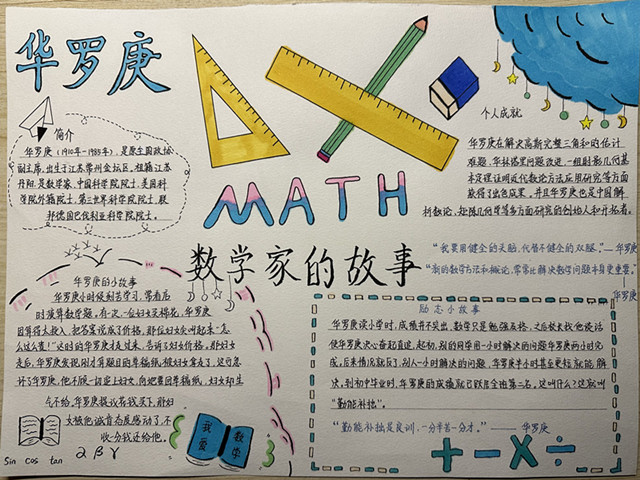 华罗庚
简介
华罗庚(1910年-1985年),是原全国政协
副主席,出生于江苏常州金坛区,祖籍江苏
丹阳,是数学家,中国科学院院士,美国科
学院外籍院士,第三世界科学院院士,联
邦德国巴伐利亚科学院院士。
MATH
数学家的故事
个人成就
华罗庚在解决高斯完整三角和的估计
难题、华林塔里问题改进、一维射影几何基
本定理证明近代数论方法应用研究等方面
获得了出色成果。并且华罗庚也是中国解
析数论、矩阵几何学等多方面研究的创始人和开拓者。
“我要用健全的头脑,代替不健全的双腿。”——华罗庚
“新的数学方法和概论,常常比解决数学问题本身更重要。”
——华罗庚
华罗庚的小故事
华罗庚小时候刻苦学习,常看店
时演算数学题,有一次,一位妇女买棉花,华罗庚
因算得太投入,把答案说成了价格,那位妇女尖叫起来:“怎
么这么贵!”这时的华罗庚才走过来,告诉了妇女价格,那妇女
走后,华罗庚发现刚才算题目的草稿纸,被妇女拿走了,这可急
坏了华罗庚,他不顾一切追上妇女,向她要回草稿纸,妇女却生
气不给,华罗庚提议花钱买下,那妇
女被他诚肯态度感动了,不
收分钱还给他。
励志小故事
华罗庚读小学时,成绩并不突出,数学只是勉强及格,之后教末找他谈话
使华罗庚决心奋起直追,起初,别的同学用一小时解决的问题华罗庚两小时完
成,后来情况就反了,别人一小时解决的问题,华罗庚半小时甚至更短就能解
决,到初中毕业时,华罗庚的成绩就已跃居全班第二名,这叫什么?这就叫
“勤能补拙”。
“勤能补拙是良训,一分辛苦一分才。”——华罗庚
我爱
数学
Sin cos tan α β γ
+ - × ÷